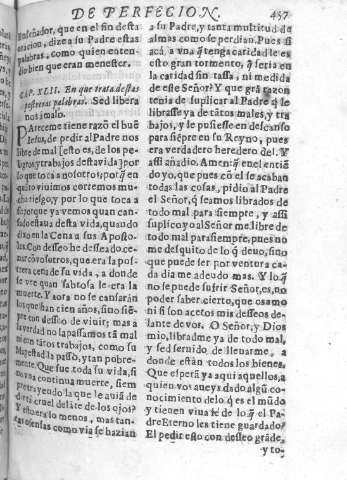 DE PERFECION. 457
Enseñador, que en el fin desta
oracion, dize a su Padre estas
palabras, como quien enten-
dio bien que eran menester.
CAP. XLII. En que trata destas
postreras palabras. Sed libera
nos à malo.
PAreceme tiene razõ el buẽ
Iesus, de pedir al Padre nos
libre de mal [esto es, de los pe-
ligros y trabajos desta vida] por
lo que toca a nosotros; porq̃ en
quãto viuimos corremos mu-
cho riesgo, y por lo que toca a
si, porque ya vemos quan can-
sado estaua desta vida, quando
dixo en la Cena a sus Aposto-
les. Con desseo he desseado ce-
nar cõ vosotros, que era la pos-
trera cena de su vida, a donde
se vee quan sabrosa le era la
muerte. Y aora no se cansarán
los que están cien años, sino siẽ-
pre con desseo de viuir; mas a
la verdad no la passamos tã mal
ni en tãtos trabajos, como su
Magestad la passò, y tan pobre-
mente. Que fue toda su vida, si
no vna continua muerte, siem
pre trayendo la que le auia de
dar tã cruel delãte de los ojos?
Y esto era lo menos, mas tan-
tas ofensas como via se hazian
a su Padre, y tanta multitud de
almas como se perdian. Pues si
acà, a vna q̃ tenga caridad le es
esto gran tormento, q̃ seria en
la caridad sin tassa, ni medida
de este Señor? Y que grã razon
tenia de suplicar al Padre q̃ le
librasse ya de tãtos males, y tra
bajos, y le pusiesse en descanso
para siẽpre en su Reyno, pues
era verdadero heredero del. Y
assi añadio. Amen: q̃ en el entiẽ
do yo, que pues cõ el se acaban
todas las cosas, pidio al Padre
el Señor, q̃ seamos librados de
todo mal para siempre, y assi
suplico yo al Señor me libre de
todo mal para siempre, pues no
me desquito de lo q̃ deuo, sino
que puede ser por ventura ca-
da dia me adeudo mas. Y lo q̃
no se puede sufrir Señor, es, no
poder saber cierto, que os amo
ni si son acetos mis desseos de-
lante de vos. O Señor, y Dios
mio, libradme ya de todo mal,
y sed seruido de lleuarme, a
donde están todos los bienes.
Que esperã ya aqui aquellos, a
quien vos aueys dado algũ co-
nocimiento de lo q̃ es el mũdo
y tienen viua fè de lo q̃ el Pa-
dre Eterno les tiene guardado?
El pedir esto con desseo grãde,
y to-